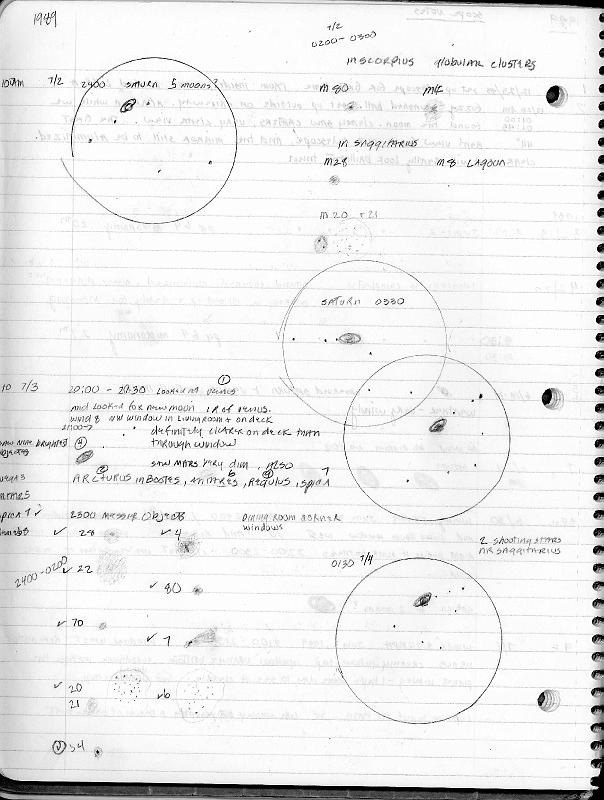 1989
7/2
0200-0300
IN SCORPIUS GLOBULAR CLUSTERS
10am 7/2 2400 SATURN 5 moons?
M 80 M4
IN SAGGITARIUS
M28 M8 LAGOON
M 20 + 21
SATURN 0330
10 7/3 20:00 - 21:30 Looked at Venus
and looked for new moon LR of Venus.
Wind & NW window in Living room + on deck
definitely clearer on deck than
through window
saw MARS very dim. M2.0
ARCTURUS in Bootes, ANTARES, REGULUS, SPICA
2300 Messier Objects
DINING ROOM CORNER
windows
2 shooting stars
NR SAGGITARIUS
✓ 28 ✓ 4
2400-0200
✓ 22
0130 7/4
✓ 80
✓ 70
✓ 7
✓ 20 ✓ 6
21
✓ 54